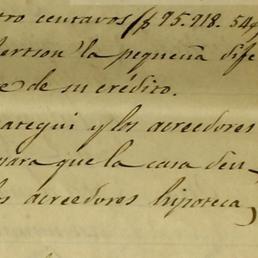 tro centavos ($ 75.718.54
bertson la pequeña dife
e de su crédito.
ategui y los acreedores
para que la casa deu
los acreedores hipoteca